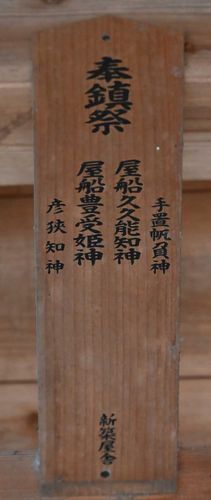 奉鎮祭
手置帆負神
屋船久久能知神
屋船豊受姫神
彦狭知神
新築屋舎